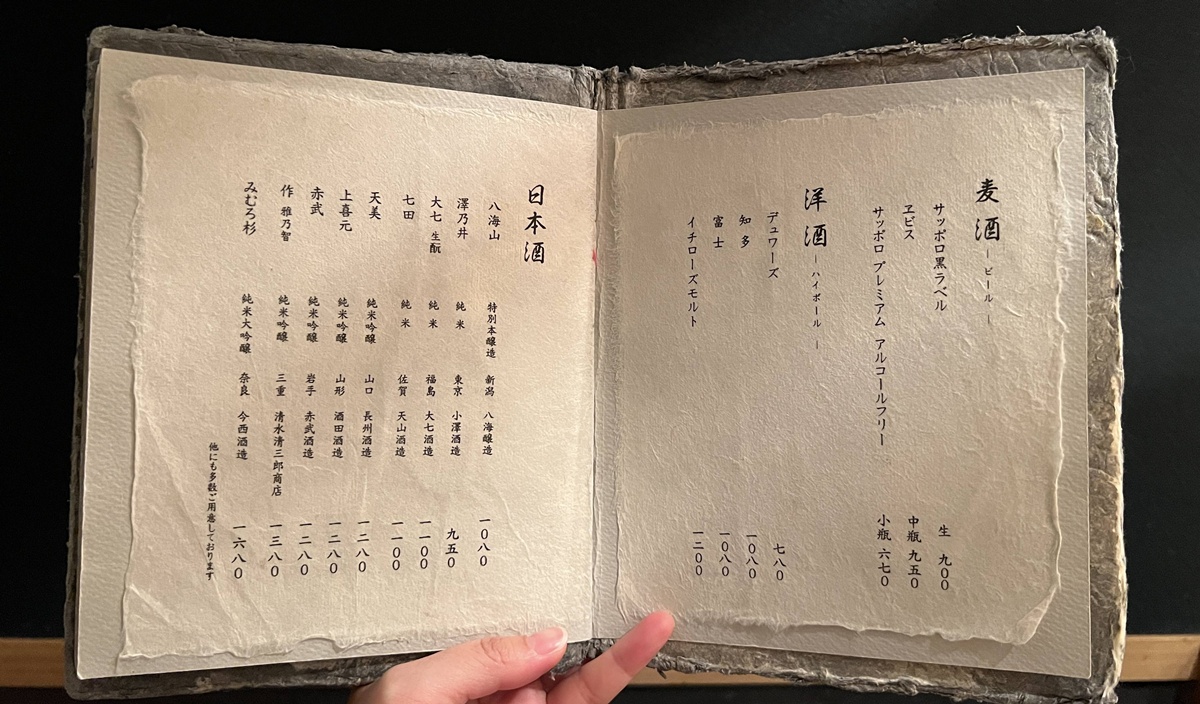 麦酒 ―ビール―
サッポロ黒ラベル 生 九〇〇
ヱビス 中瓶 九五〇
サッポロ プレミアム アルコールフリー 小瓶 六七〇
洋酒 ―ハイボール―
デュワーズ 七八〇
知多 一〇八〇
富士 一〇八〇
イチローズモルト 一二〇〇
日本酒
八海山 特別本醸造 新潟 八海醸造 一〇八〇
澤乃井 純米 東京 小澤酒造 九五〇
大七 生酛 純米 福島 大七酒造 一一〇〇
七田 純米 佐賀 天山酒造 一一〇〇
天美 純米吟醸 山口 長州酒造 一二八〇
上喜元 純米吟醸 山形 酒田酒造 一二八〇
赤武 純米吟醸 岩手 赤武酒造 一二八〇
作 雅乃智 純米吟醸 三重 清水清三郎商店 一三八〇
みむろ杉 純米大吟醸 奈良 今西酒造 一六八〇
他にも多数ご用意しております